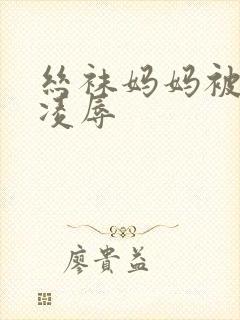 丝袜妈妈被
凌辱
廖貴益